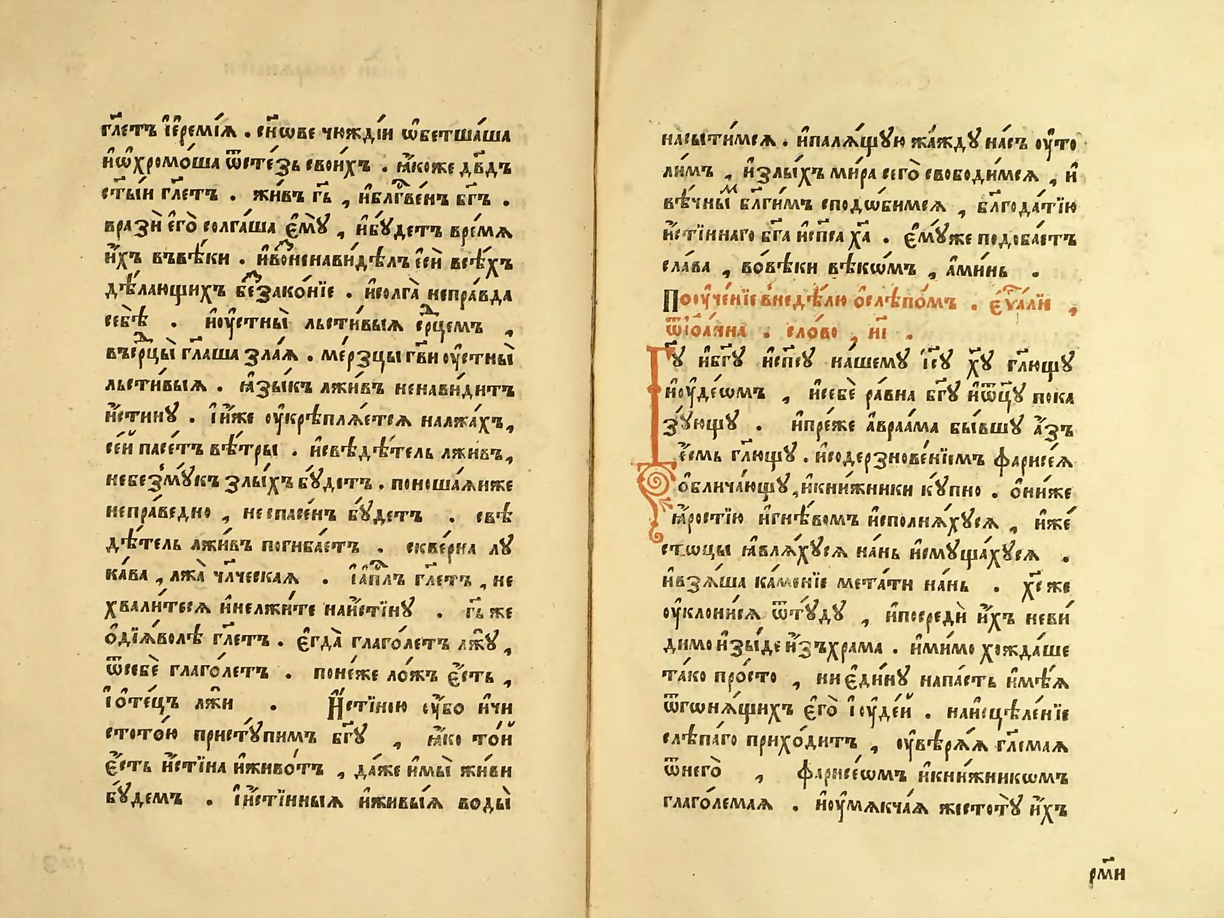 гл҃етъ і҆еремі́ѧ . сн҃ѡве чю́ждїи ѡ҆бетша́ша
и҆ѡ҆хромо́ша ѿсте́зь свои́хъ . ꙗ҆́коже дв҃дъ
ст҃ы́и гл҃етъ . жи́въ гь҃ , и҆блгⷭ҇ве́нъ бг҃ъ .
врази̑ є҆го̀ солга́ша є҆мꙋ̀ , и҆бꙋ́детъ вре́мѧ
и҆́хъ въвѣ́ки . и҆во́ненави́дѣлъ є҆сѝ всѣ́хъ
дѣ́лающихъ беззако́нїе . и҆солга̀ непра́вда
себѣ̀ . и҆оу҆стны̀ льсти́выѧ срⷣцемъ ,
въсрⷣцы̀ гл҃аша зла́ѧ . ме́рзцы гв҃и оу҆стны̀
льсти́выѧ . ꙗ҆зы́къ лжи́въ ненави́дитъ
и҆́стинꙋ . і҆и҆́же оу҆крѣплѧ́етсѧ налжа́хъ ,
се́й пасе́тъ вѣ́тры . и҆свѣдѣ́тель лжи́въ ,
небезмꙋ́къ злы́хъ бꙋ́детъ . поноша́ѧиже
непра́ведно , неспасе́нъ бꙋ́детъ . свѣ
дѣ́тель лжи́въ погиба́етъ . скве́рна лꙋ
ка́ва , лжа̀ чл҃ческаѧ . і҆а҆пⷭ҇лъ гл҃етъ , не
хвали́тесѧ и҆нелжи́те наи҆́стинꙋ . гь҃ же
ѻ҆дїѧ́волѣ гл҃етъ . є҆гда̀ глаго́летъ лжꙋ̀ ,
ѿсебѐ глаго́летъ . поне́же ло́жъ є҆́сть ,
і҆ѻ҆те́цъ лжѝ . И҆́стїною оу҆́бо и҆чи
стото́ю пристꙋ́пимъ бг҃ꙋ , ꙗ҆́ко то́и
є҆́сть и҆́стїна и҆живо́тъ , да́же и҆мы̀ жи́ви
бꙋ́демъ . і҆и҆́стїнныѧ и҆живы́ѧ воды̀
насы́тимсѧ . и҆палѧ́щꙋю жа́ждꙋ на́съ оу҆то
ли́мъ , и҆злы́хъ ми́ра сего̀ свободи́мсѧ , и҆
вѣ́чныⷨ бл҃ги́мъ сподо́бимсѧ , бл҃года́тїю
и҆́стїннаго бг҃а и҆сп҃са хс҃а . є҆мꙋ́же подоба́етъ
сла́ва , вовѣ́ки вѣкѡ́мъ , а҆ми́нь .
Поꙋче́нїе внедѣ́лю ѻ҆слѣпо́мъ . є҆ѵⷢ҇а́лїе ,
ѿїѻ҆а́нна . сло́во , н҃і .
Гꙋ҃ и҆бг҃ꙋ и҆сп҃сꙋ на́шемꙋ і҆с҃ꙋ хс҃ꙋ гл҃ющꙋ
і҆ꙋде́ѡмъ , и҆себѐ ра́вна бг҃ꙋ и҆ѿц҃ꙋ пока
зꙋ́ющꙋ . и҆пре́же а҆враа́ма бы́вшꙋ а҆́зъ
є҆́смь гл҃ющꙋ . и҆содерзнове́нїемъ фарисе́ѧ
ѻ҆блича́ющꙋ , и҆кни́жники кꙋ́пно . ѻ҆ни́же
ꙗ҆́ростїю и҆гнѣ́вомъ и҆сполнѧ́хꙋсѧ , и҆́же
стѡцы̀ ꙗ҆влѧ́хꙋсѧ на́нь и҆смꙋща́хꙋсѧ .
и҆взѧ́ша ка́менїе мета́ти на́нь . хс҃ же
оу҆клони́сѧ ѿтꙋ́дꙋ , и҆посредѝ и҆́хъ неви́
димо и҆зы́де и҆зъхра́ма . и҆ми́мо хожда́ше
та́ко про́сто , ниє҆ди́нꙋ напа́сть и҆мѣ́ѧ
ѿгонѧ́щихъ є҆го̀ і҆ꙋде́й . наи҆сцѣле́нїе
слѣ́паго прихо́дитъ , оу҆вѣрѧ́ѧ гл҃емаѧ
ѿнего̀ , фарисе́ѡмъ и҆кни́жникѡмъ
глаго́лемаѧ . и҆оу҆мѧкча́ѧ жестотꙋ̀ и҆́хъ
рм҃и